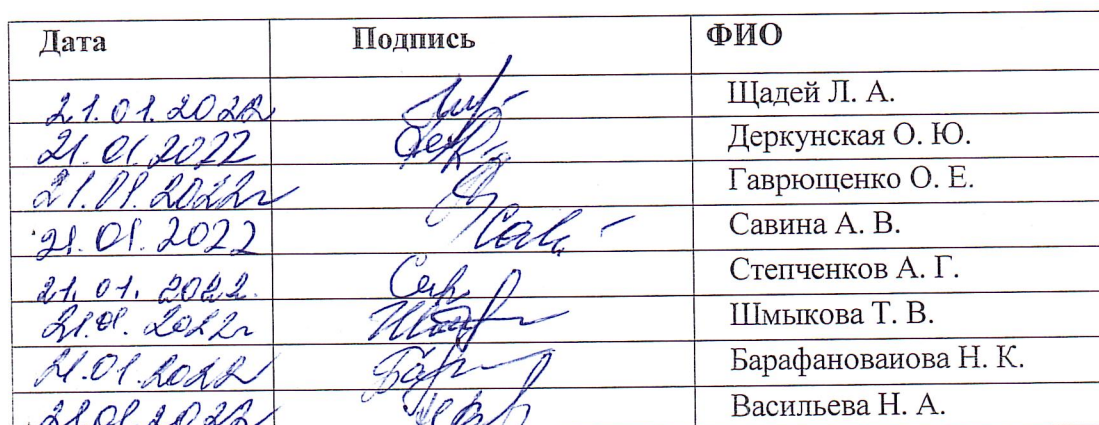 Дата Подпись ФИО
21.01.2022 Щадей Л. А.
21.01.2022 Дерк Деркунская О. Ю.
21.01.2022г Гаврющенко О. Е.
21.01.2022 Сав Савина А. В.
21.01.2022. Степченков А. Г.
21.01.2022г Шмыкова Т. В.
21.01.2022 Барафановаиова Н. К.
21.01.2022 Васильева Н. А.